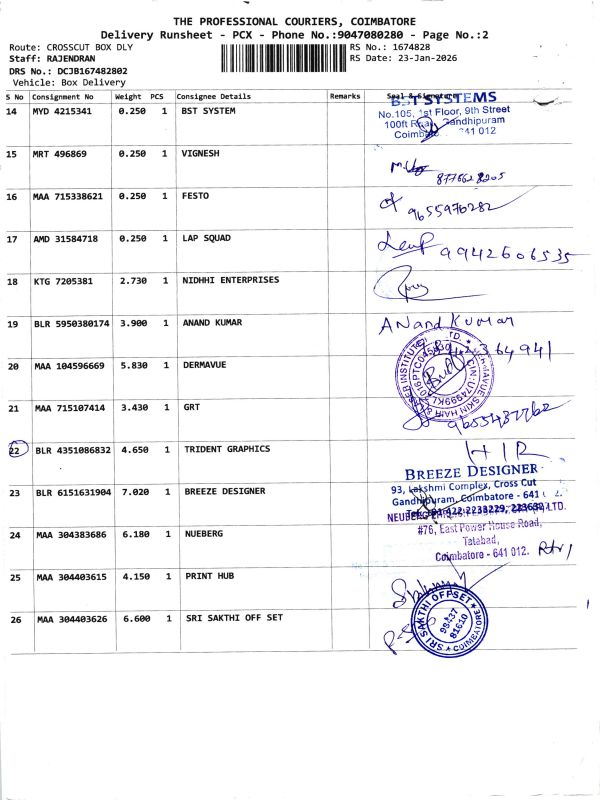 THE PROFESSIONAL COURIERS, COIMBATORE
Delivery Runsheet - PCX - Phone No.:9047080280 - Page No.:2
Route: CROSSCUT BOX DLY
RS No.: 1674828
Staff: RAJENDRAN
RS Date: 23-Jan-2026
DRS No.: DCJB167482802
Vehicle: Box Delivery
S No Consignment No Weight PCS Consignee Details Remarks Seal & Signature
14 MYD 4215341 0.250 1 BST SYSTEM
BST SYSTEMS
No.105, 1st Floor, 9th Street
100ft Road, Gandhipuram
641 012
15 MRT 496869 0.250 1 VIGNESH
16 MAA 715338621 0.250 1 FESTO
9655976282
17 AMD 31584718 0.250 1 LAP SQUAD
9942606535
18 KTG 7205381 2.730 1 NIDHHI ENTERPRISES
19 BLR 5950380174 3.900 1 ANAND KUMAR
ANand Kumar
20 MAA 104596669 5.830 1 DERMAVUE
21 MAA 715107414 3.430 1 GRT
22 BLR 4351086832 4.650 1 TRIDENT GRAPHICS
23 BLR 6151631904 7.020 1 BREEZE DESIGNER
BREEZE DESIGNER
93, Lakshmi Complex, Cross Cut
Gandhipuram, Coimbatore - 641
24 MAA 304383686 6.180 1 NUEBERG
#76, East Power House Road,
Tatabad,
Coimbatore - 641 012.
25 MAA 304404615 4.150 1 PRINT HUB
26 MAA 304403626 6.600 1 SRI SAKTHI OFF SET
SRI SAKTHI OFFSET
COIMBATORE
98437
81610